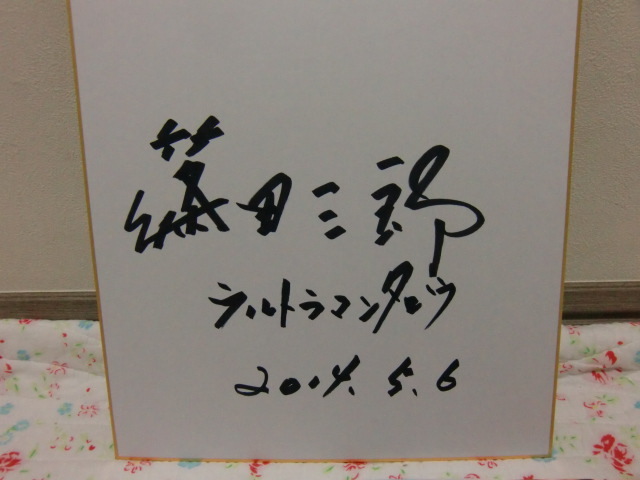 篠田三郎
ウルトラマンタロウ
2014.5.6